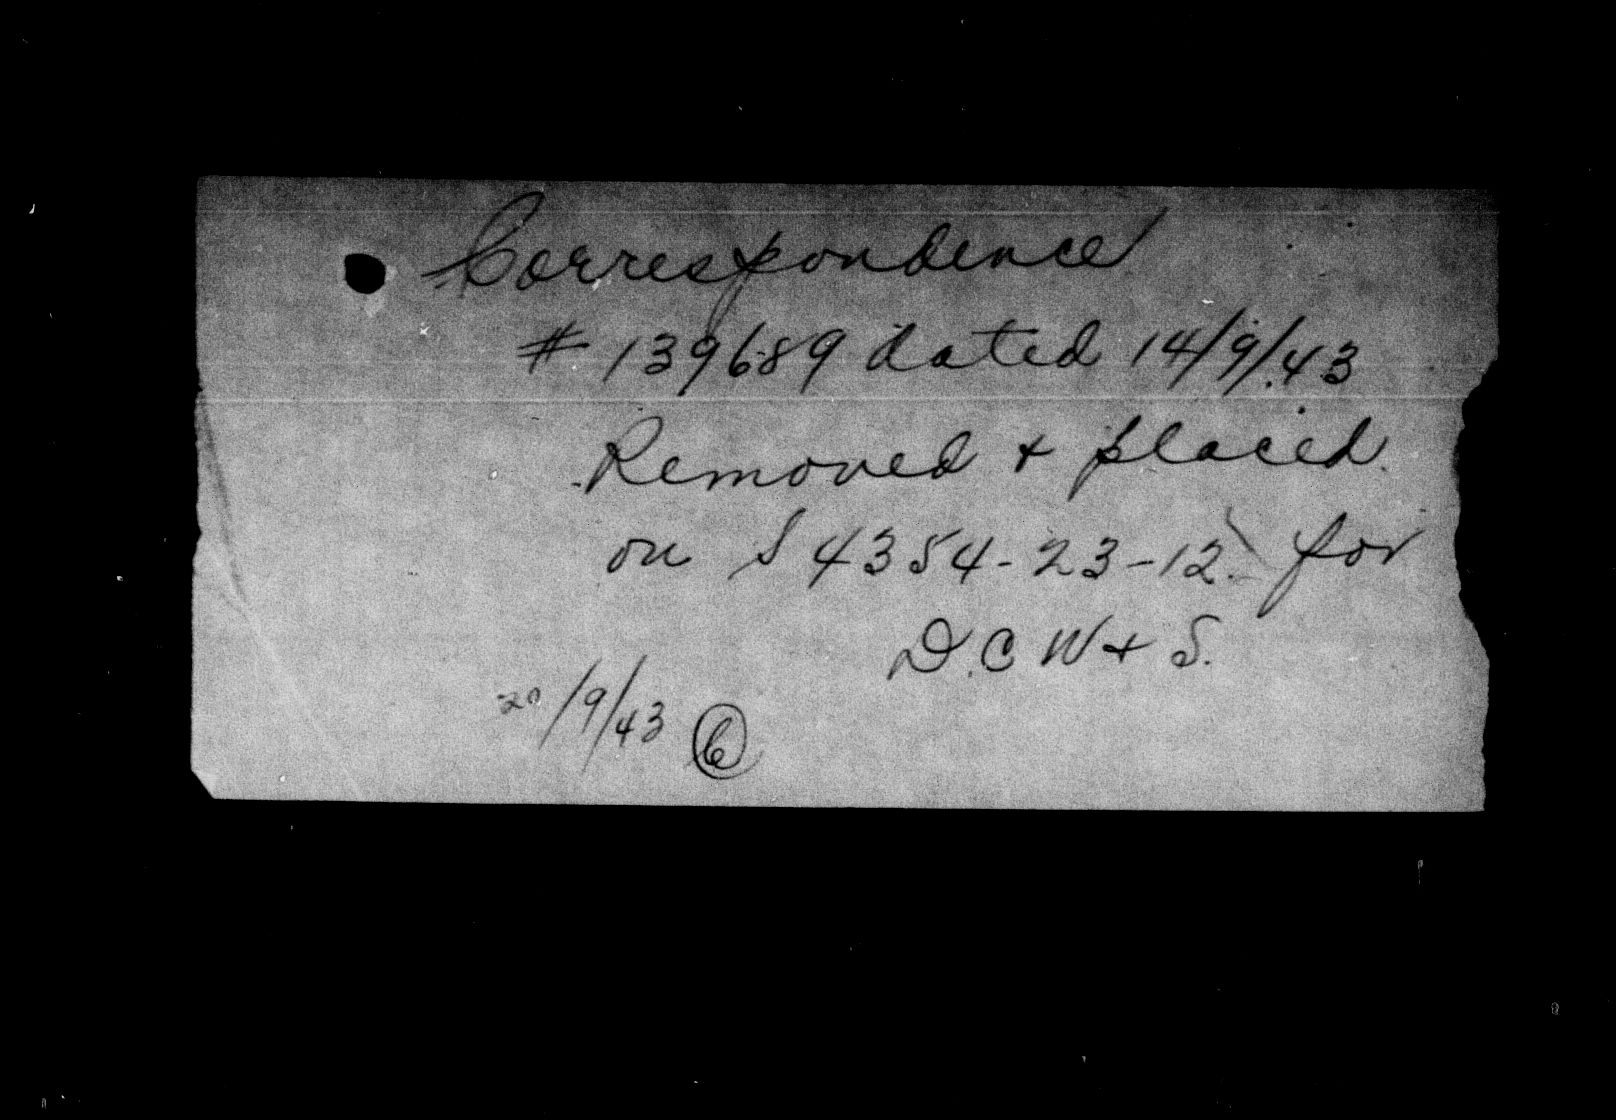 Correspondence
# 139689 dated 14/9/43
Removed + placed
on S 4354-23-12 for
D.C W + S.
20/9/43 6